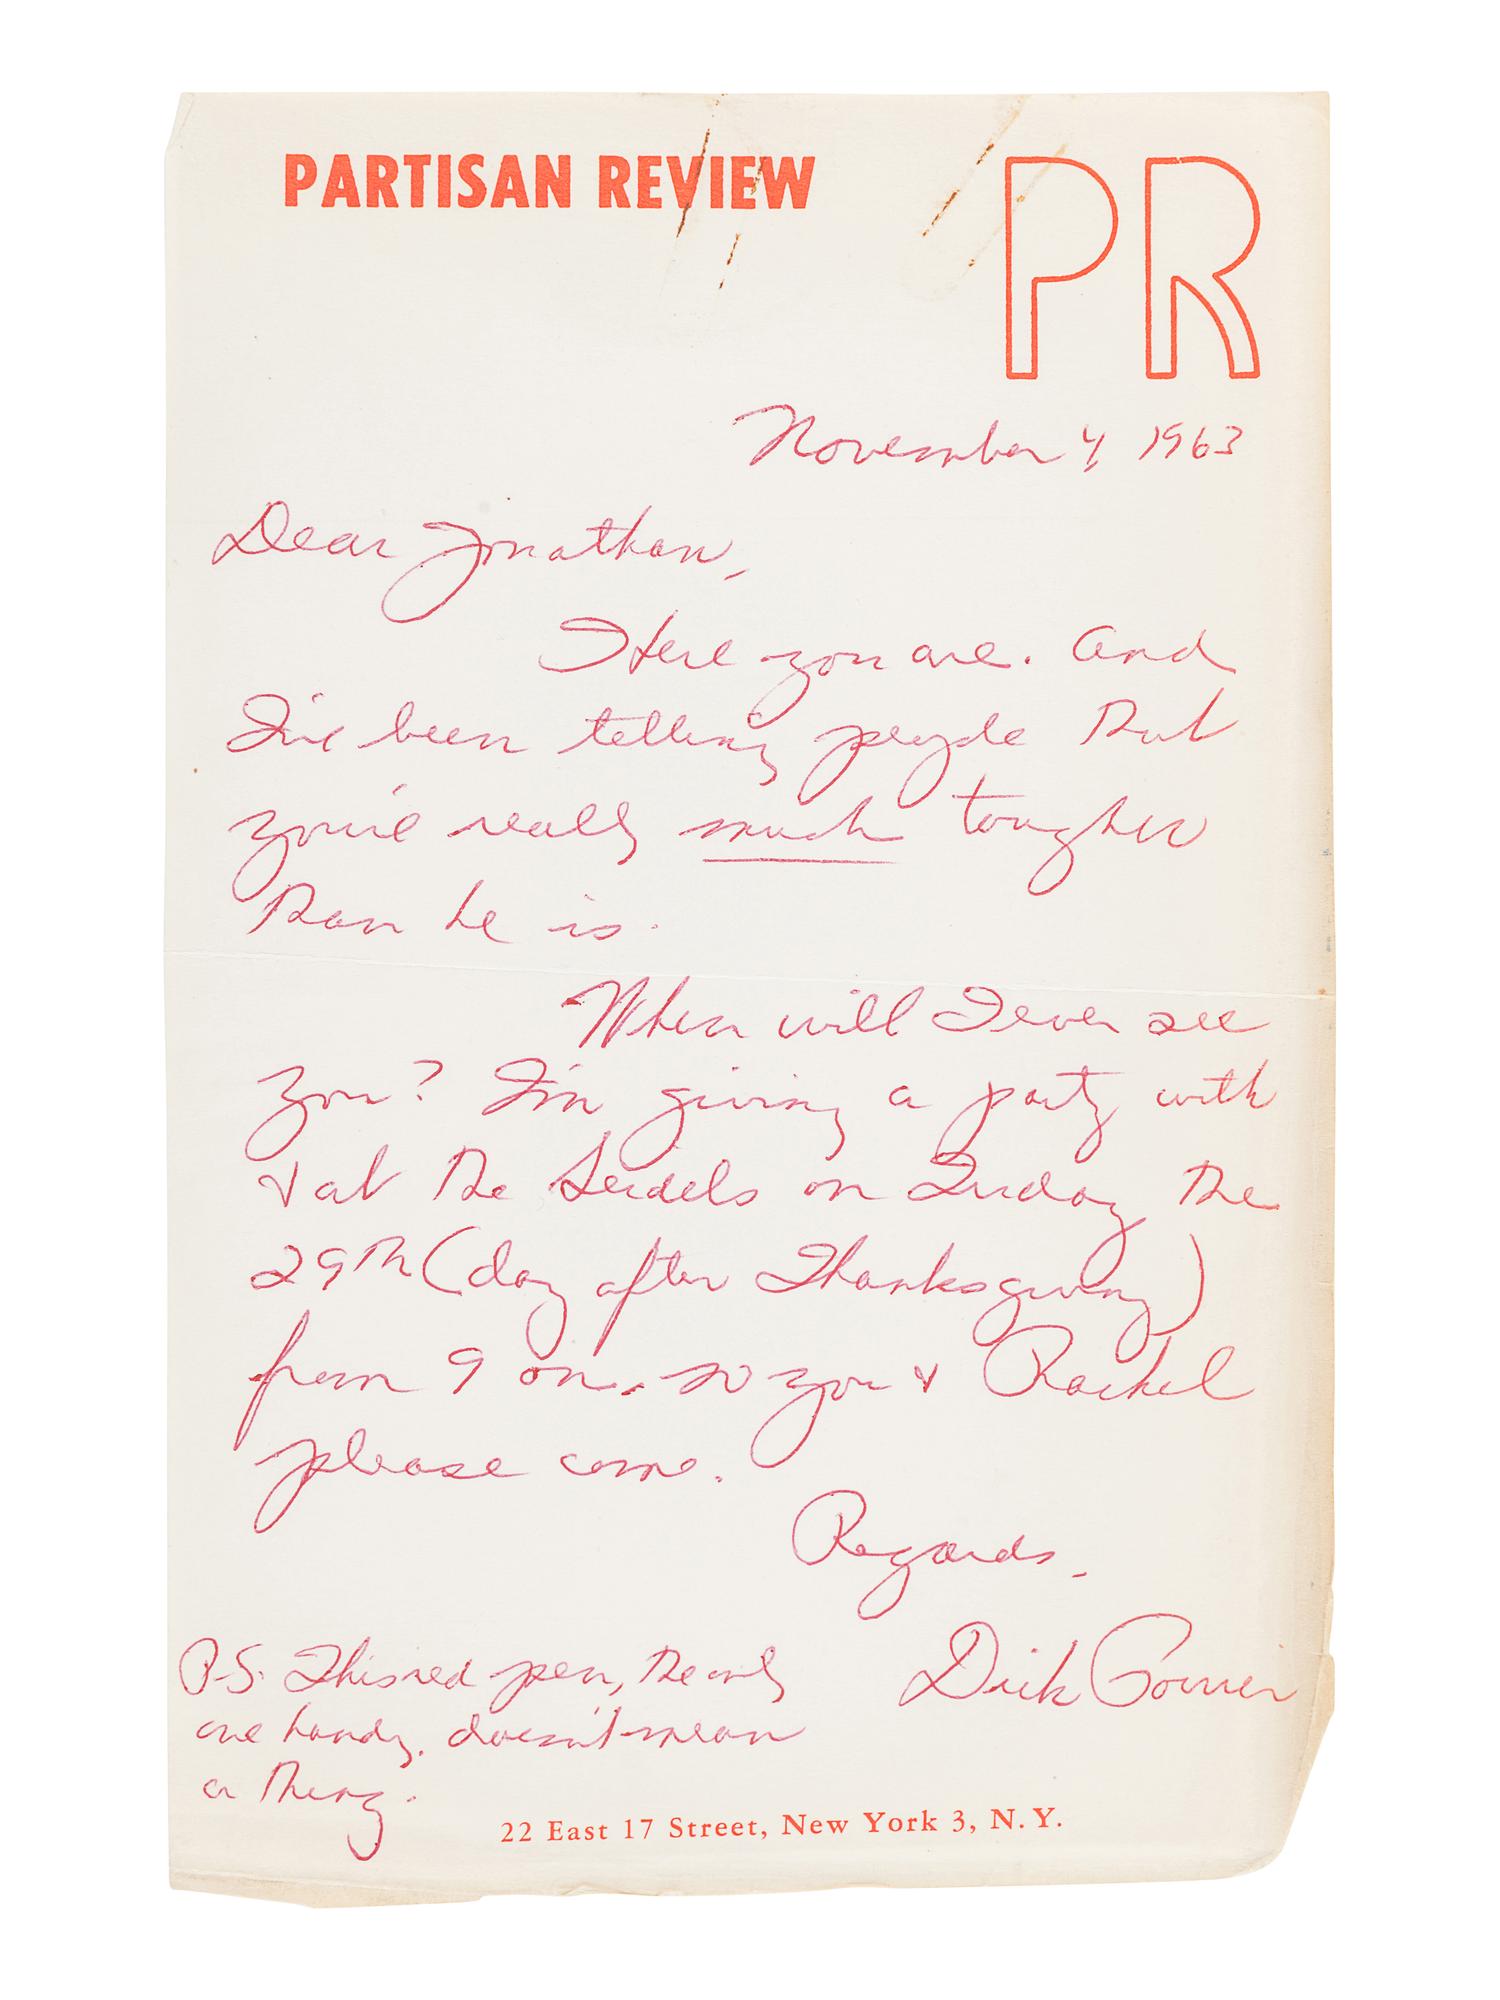 PARTISAN REVIEW
PR
November 4, 1963
Dear Jonathan,
Here you are. And
I've been telling people that
you're really much tougher
than he is.
When will I ever see
you? I'm giving a party with
& at the Seidels on Friday the
29th (day after Thanksgiving)
from 9 on. So you & Rachel
please come.
Regards,
Dick
P.S. This red pen, the only
one handy, doesn't mean
a thing.
22 East 17 Street, New York 3, N.Y.